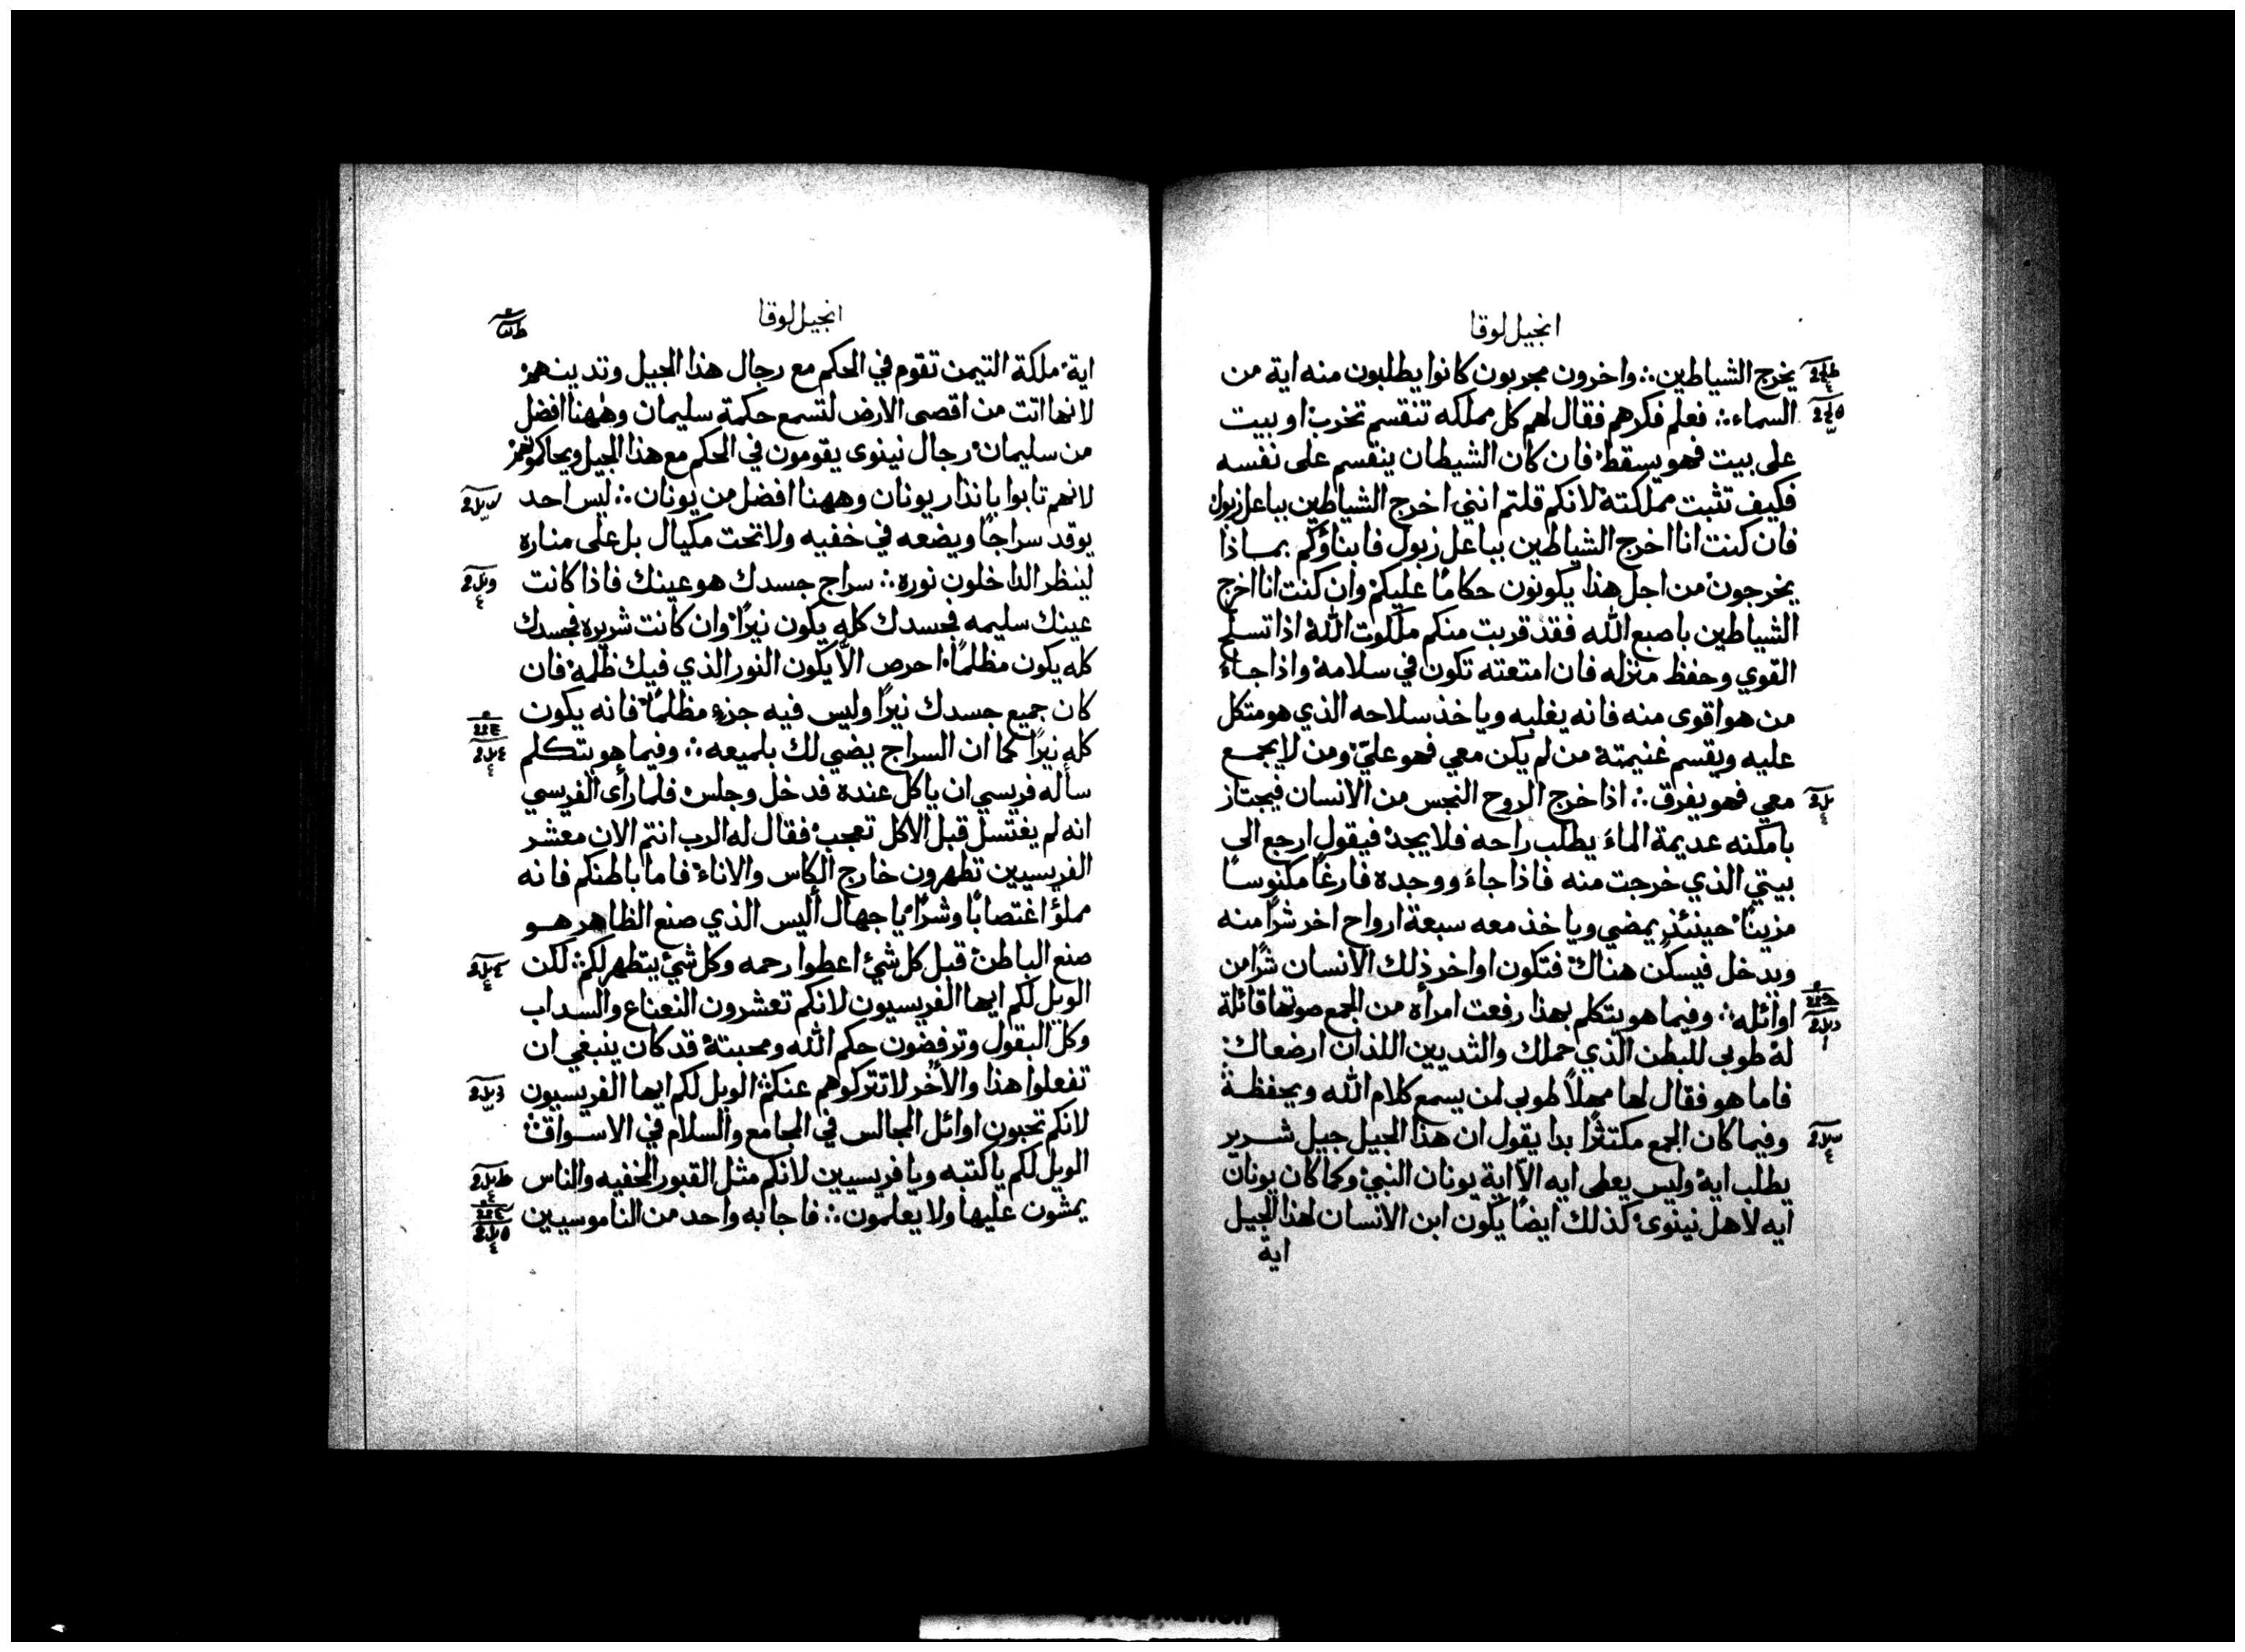 انجيل لوقا
يخرج الشياطين ∴ واخرون مجربون كانوا يطلبون منه اية من
السماء ∴ فعلم فكرهم فقال لهم كل مملكه تنقسم تخرب او بيت
على بيت فهو يسقط فان كان الشيطان ينقسم على نفسه
فكيف تثبت مملكتة لانكم قلتم انني اخرج الشياطين بباعل زبول
فان كنت انا اخرج الشياطين بباعل زبول فابناؤكم بماذا
يخرجون من اجل هذا يكونون حكامًا عليكم وان كنت انا اخرج
الشياطين باصبع الله فقد قربت منكم ملكوت الله اذا تسلح
القوي وحفظ منزله فان امتعته تكون في سلامة واذا جاءَ
من هو اقوى منه فانه يغلبه وياخذ سلاحه الذي هو متكل
عليه ويقسم غنيمتة من لم يكن معي فهو عليّ ومن لا يجمع
معي فهو يفرق ∴ اذا خرج الروح النجس من الانسان فيجتاز
بامكنه عديمة الماءَ يطلب راحه فلا يجد فيقول ارجع الى
بيتي الذي خرجت منه فاذا جاءَ ووجده فارغًا مكنوسًا
مزينًا حينئذٍ يمضي وياخذ معه سبعة ارواح اخر شرًا منه
ويدخل فيسكن هناك فتكون اواخر ذلك الانسان شرًا من
اوائله ∴ وفيما هو يتكلم بهذا رفعت امرأه من الجمع صوتها قائلة
له طوبى للبطن الذي حملك والثديين اللذان ارضعاك
فاما هو فقال لها مهلاً طوبى لمن يسمع كلام الله ويحفظة
وفيما كان الجمع مكتثرًا بدا يقول ان هذا الجيل جيل شرير
يطلب اية وليس يعطى ايه الاّ اية يونان النبي وكما كان يونان
ايه لاهل نينوى كذلك ايضًا يكون ابن الانسان لهذا الجيل
اية
انجيل لوقا
اية ملكة التيمن تقوم في الحكم مع رجال هذا الجيل وتدينهم
لانها اتت من اقصى الارض لتسمع حكمة سليمان وههنا افضل
من سليمان رجال نينوى يقومون في الحكم مع هذا الجيل ويحاكمونهم
لانهم تابوا بانذار يونان وههنا افضل من يونان ∴ ليس احد
يوقد سراجًا ويضعه في خفيه ولا تحت مكيال بل على مناره
لينظر الداخلون نوره ∴ سراج جسدك هو عينك فاذا كانت
عينك سليمه فجسدك كله يكون نيرًا وان كانت شريره فجسدك
كله يكون مظلمًا احرص الاّ يكون النور الذي فيك ظلمة فان
كان جميع جسدك نيرًا وليس فيه جزء مظلمًا فانه يكون
كله نيرًا كما ان السراج يضي لك بلميعه ∴ وفيما هو يتكلم
سأله فريسي ان ياكل عنده فدخل وجلس فلما رأى الفريسي
انه لم يغتسل قبل الاكل تعجب فقال له الرب انتم الان معشر
الفريسيين تطهرون خارج الكاس والاناء فاما باطنكم فانه
مملؤ اغتصابًا وشرًا يا جهال أليس الذي صنع الظاهر هو
صنع الباطن قبل كل شئ اعطوا رحمه وكل شئ يتطهر لكم ∴ لكن
الويل لكم ايها الفريسيون لانكم تعشرون النعناع والسداب
وكل البقول وترفضون حكم الله ومحبتة قد كان ينبغي ان
تفعلوا هذا والأخر لا تتركوهم عنكم ∴ الويل لكم ايها الفريسيون
لانكم تحبون اوائل المجالس في المجامع والسلام في الاسواق ∴
الويل لكم يا كتبه ويا فريسيين لانكم مثل القبور المخفيه والناس
يمشون عليها ولا يعلمون ∴ فاجابه واحد من الناموسيين